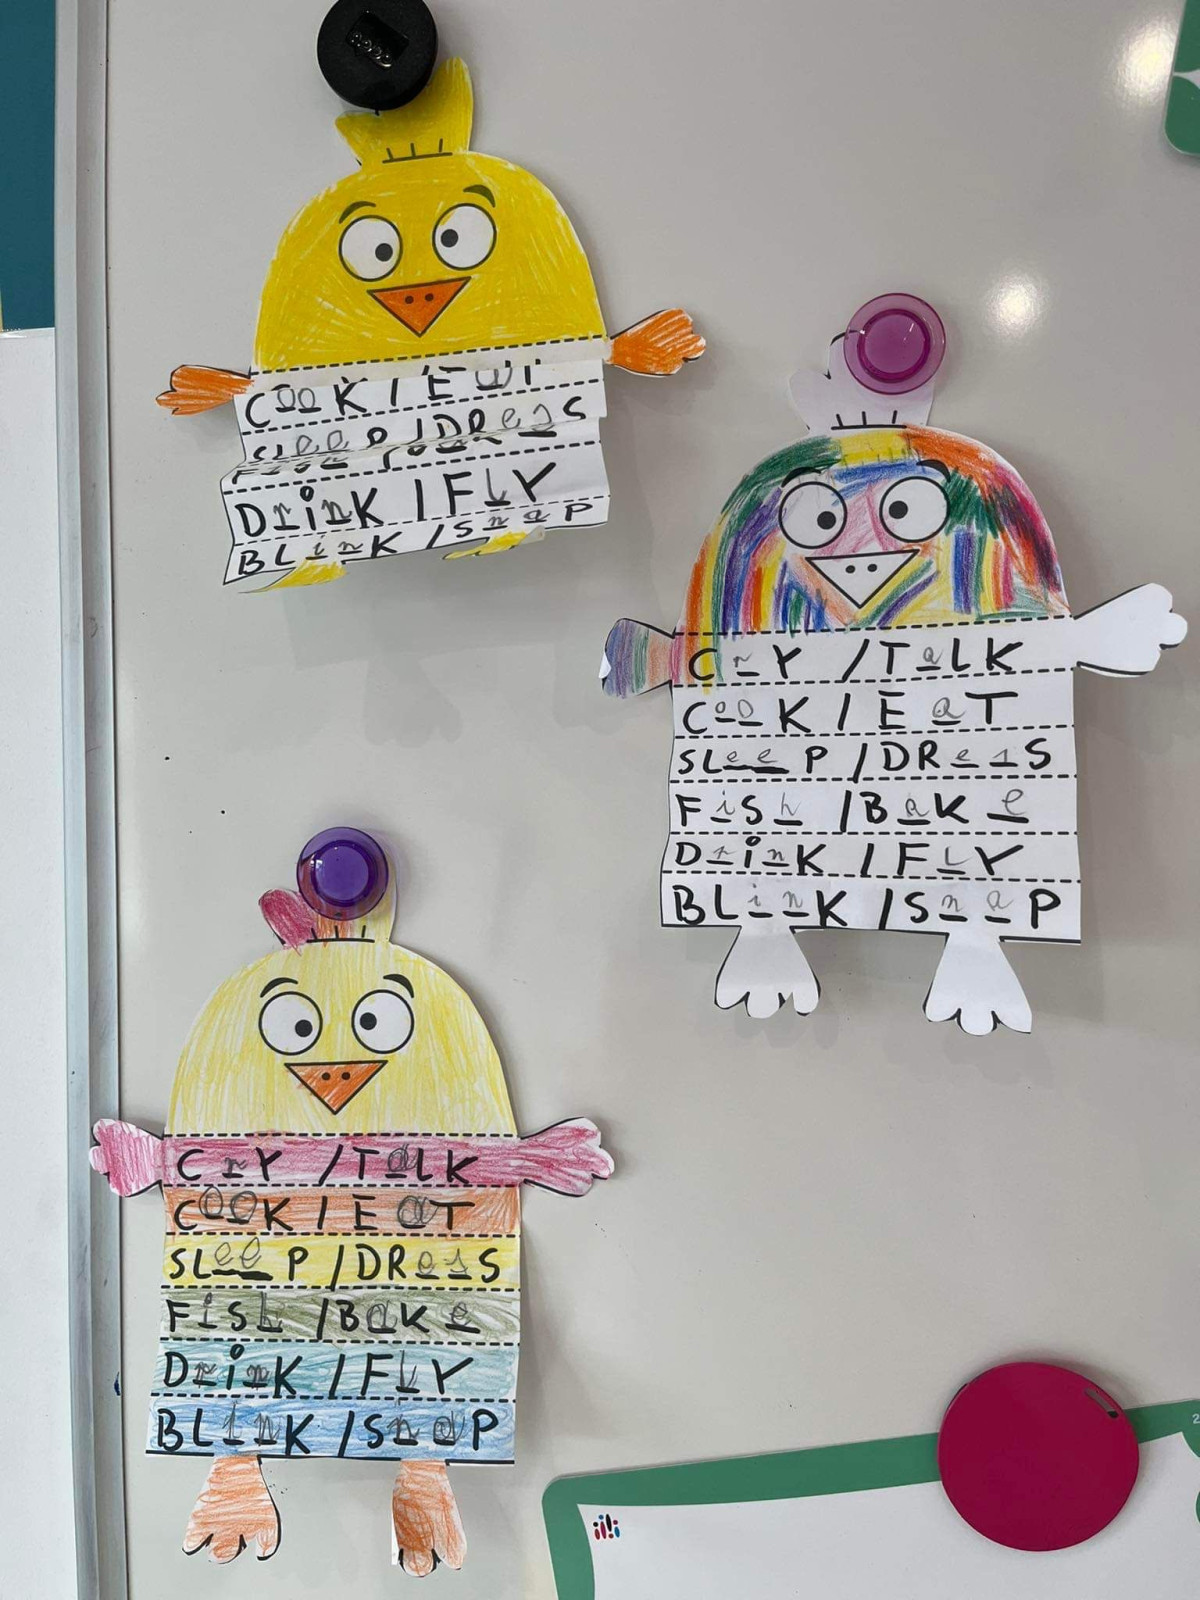 COOK / EaT
SLeeP / DResS
DrinK / FLY
BLinK / SnaP
CrY / TaLK
CooK / EaT
SLeeP / DResS
FiSh / BaKe
DrinK / FLY
BLinK / SnaP
CrY / TaLK
COOK / EaT
SLeeP / DResS
FiSh / BaKe
DrinK / FLY
BLinK / SnaP